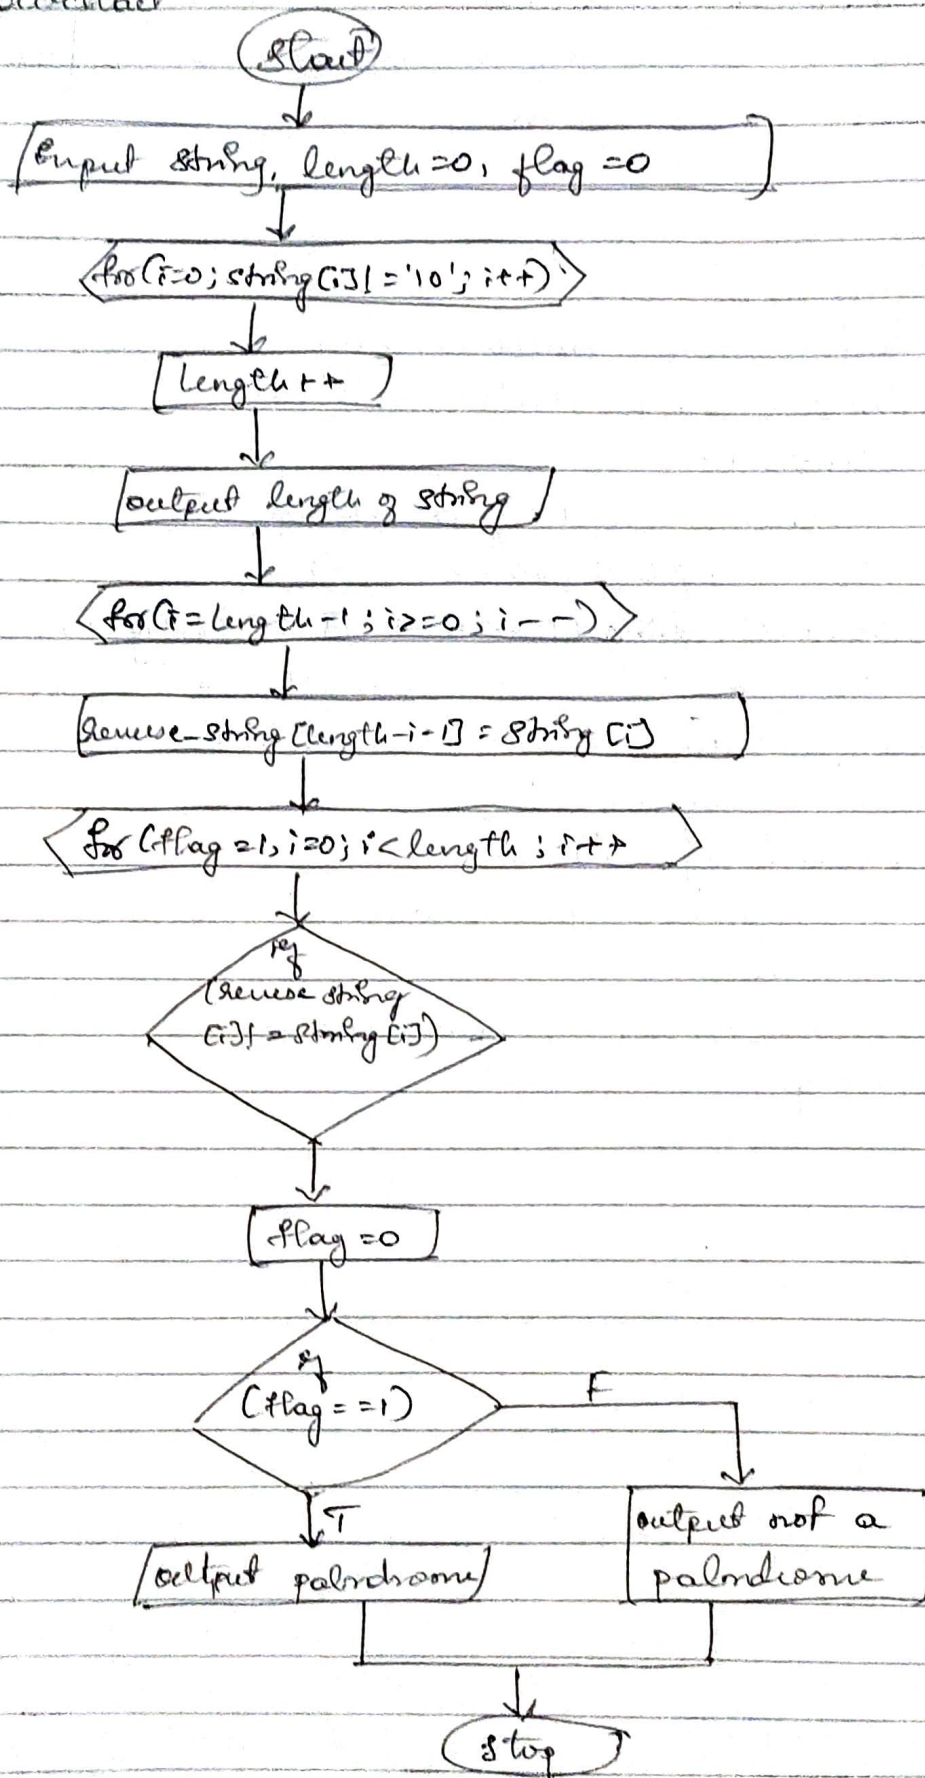 Start
Input string, length=0, flag=0
for(i=0; string[i]!='\0'; i++)
length++
output length of string
for(i=length-1; i>=0; i--)
reverse_string[length-i-1] = string[i]
for(flag=1, i=0; i<length; i++
if
(reverse string
[i]!=string[i])
flag=0
if
(flag==1)
F
T
output not a
palindrome
output palindrome
Stop